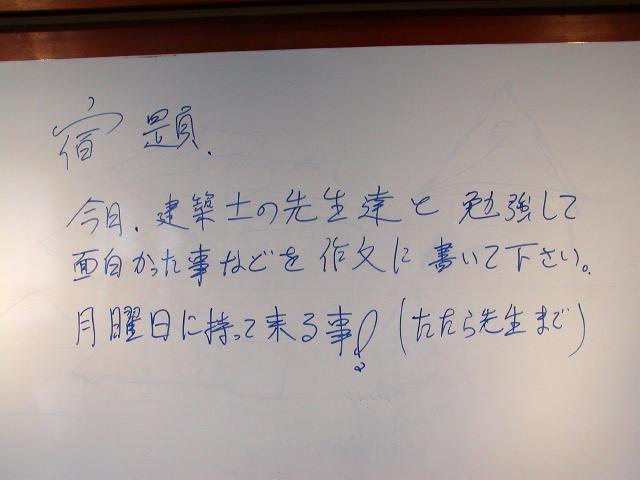 宿題.
今日、建築士の先生達と勉強して
面白かった事などを作文に書いて下さい。
月曜日に持って来る事!(たたら先生まで)